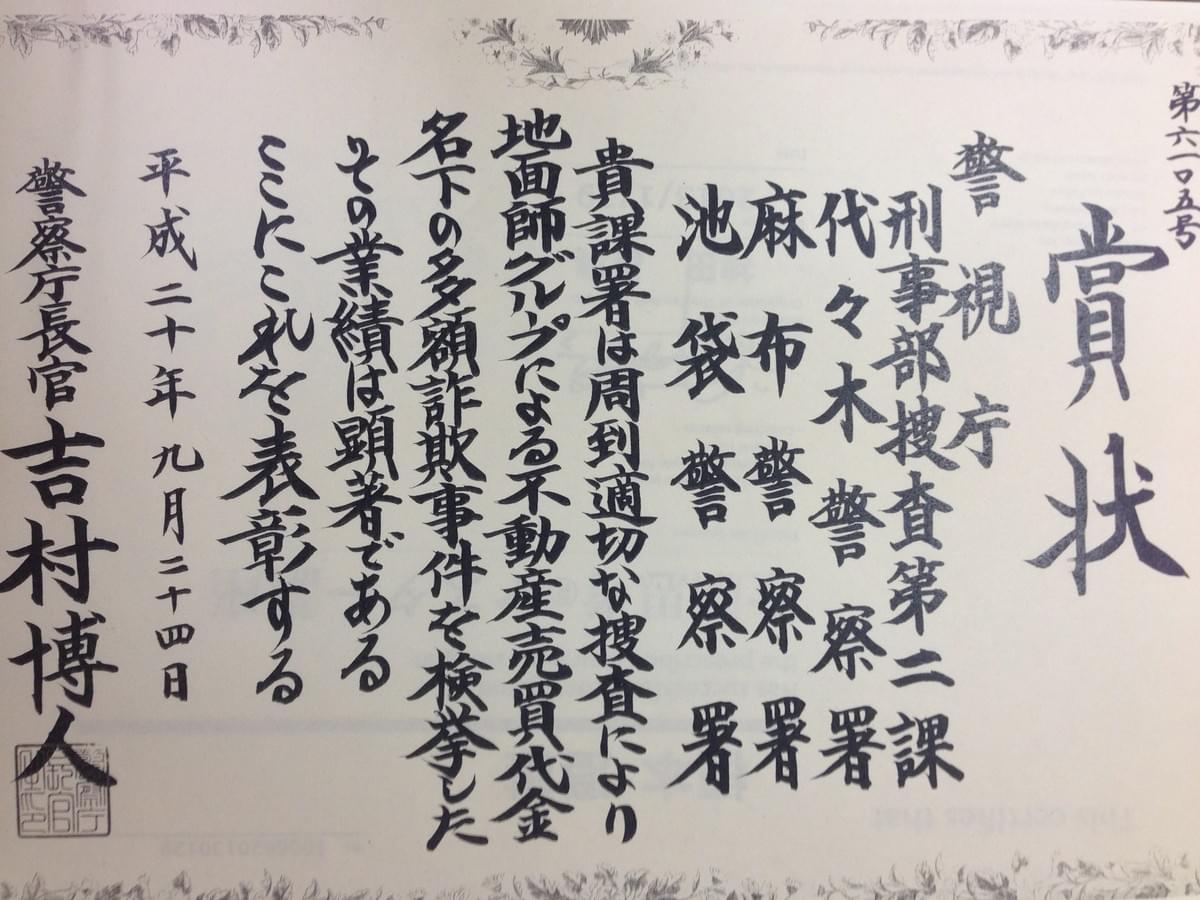 第六一〇五号
賞状
警視庁
刑事部捜査第二課
代々木警察署
麻布警察署
池袋警察署
貴課署は周到適切な捜査により
地面師グループによる不動産売買代金
名下の多額詐欺事件を検挙した
その業績は顕著である
ここにこれを表彰する
平成二十年九月二十四日
警察庁長官吉村博人
This certifies that